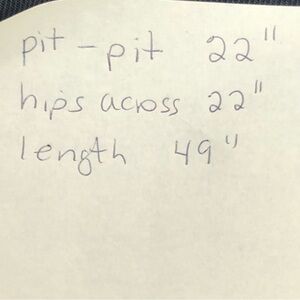 pit - pit 22"
hips across 22"
length 49"